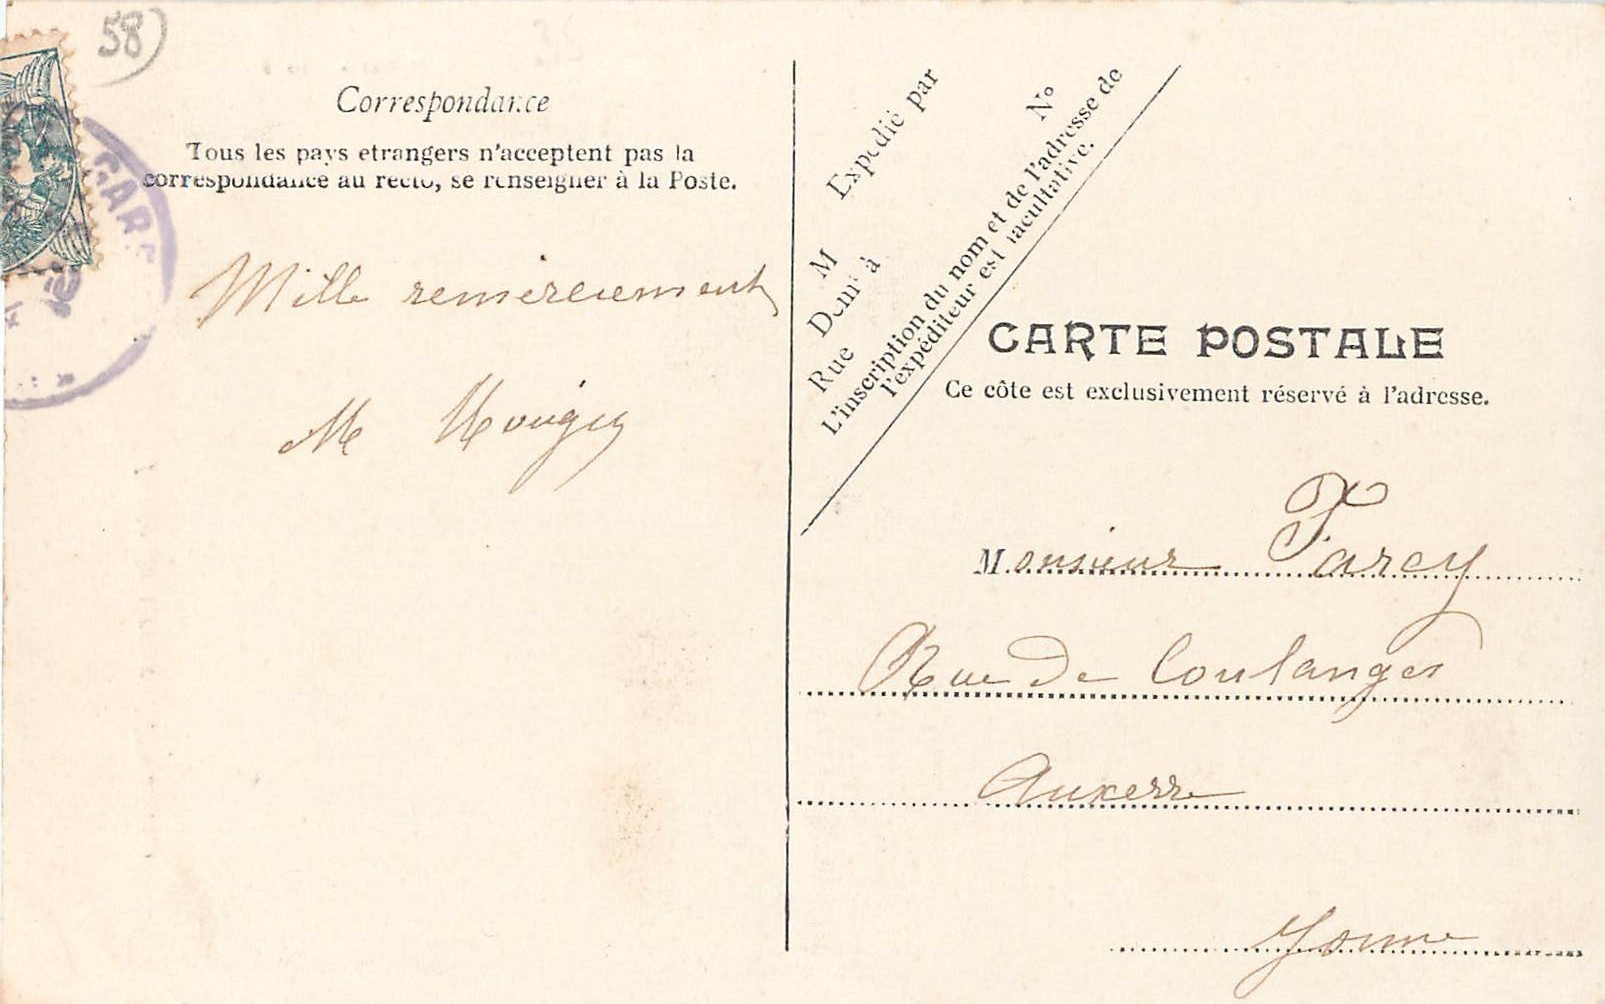 58
GARE
Correspondance
Tous les pays etrangers n'acceptent pas la
correspondance au recto, se renseigner à la Poste.
Mille remerciement
M Mougey
Expedié par
M
Demt à
Rue
No
L'inscription du nom et de l'adresse de
l'expéditeur est facultative.
CARTE POSTALE
Ce côte est exclusivement réservé à l'adresse.
Monsieur Farcy
Rue De Coulanges
Auxerre
Yonne